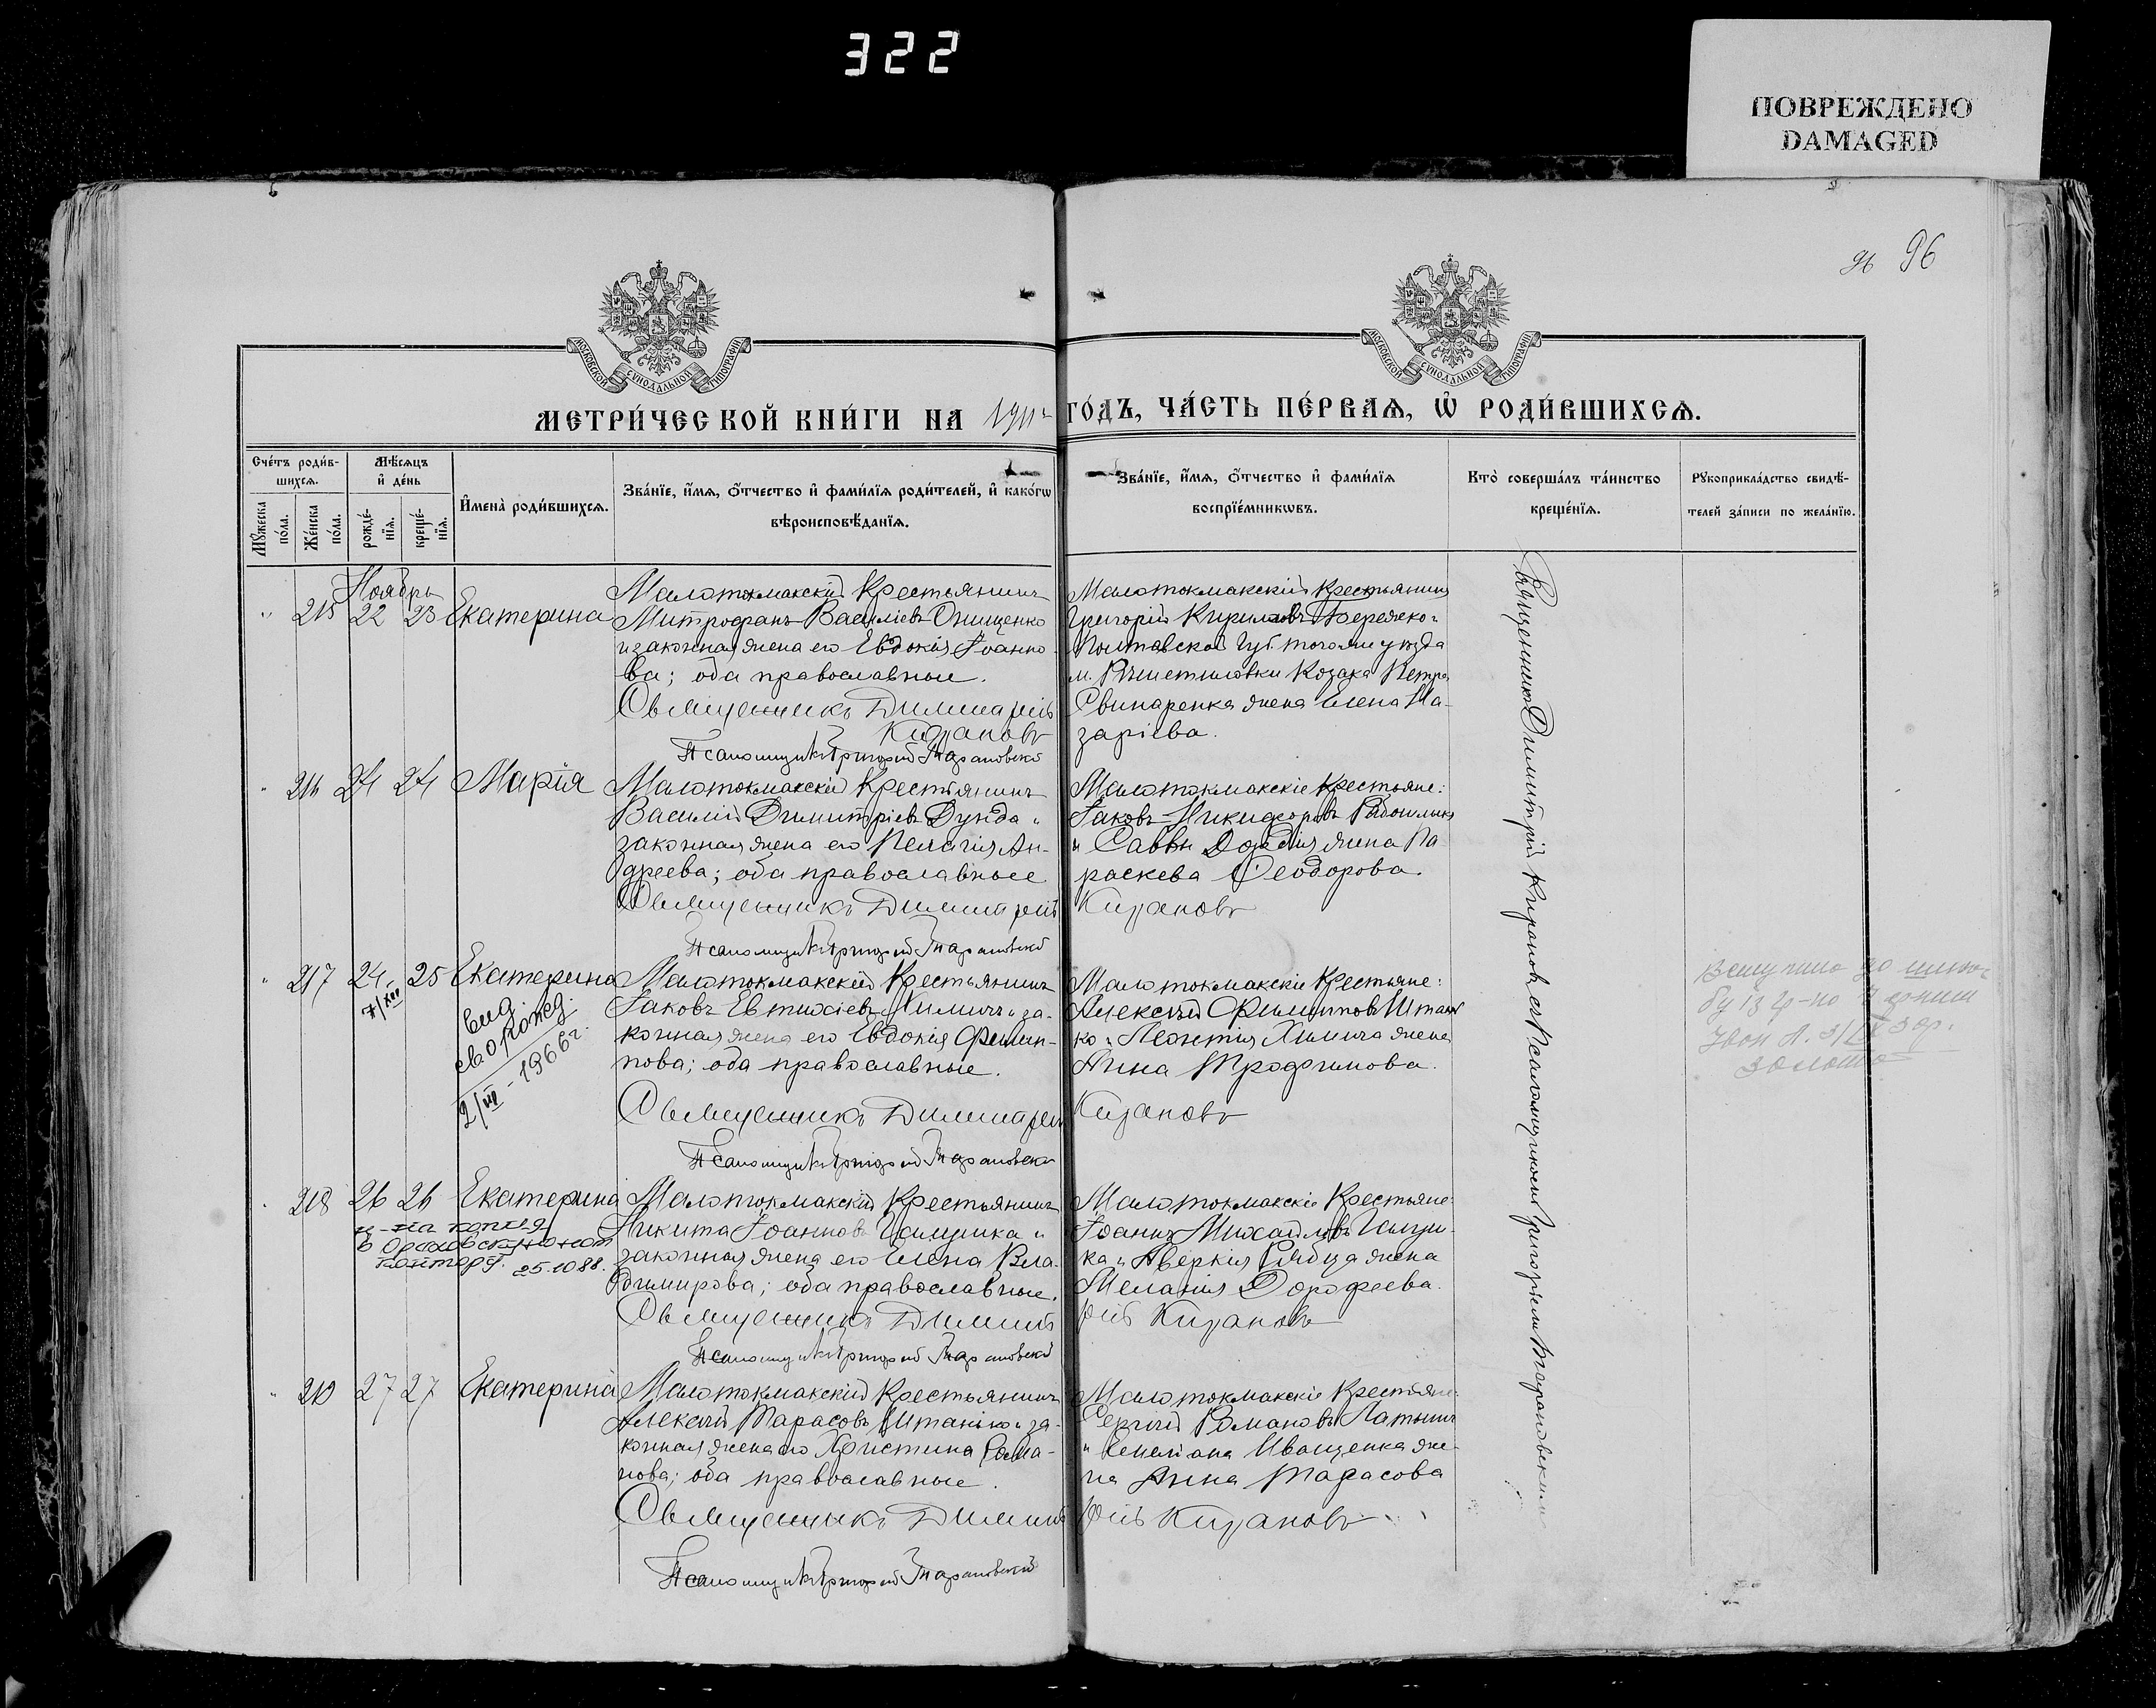 322
ПОВРЕЖДЕНО
DAMAGED
96 96
МОСКОВСКОЙ СѴНОДАЛЬНОЙ ТИПОГРАФІИ
МОСКОВСКОЙ СѴНОДАЛЬНОЙ ТИПОГРАФІИ
МЕТРИ́ЧЕСКОЙ КНИ́ГИ НА 1911 ГО́ДЪ, ЧА́СТЬ ПЕ́РВАѦ, Ѡ҆ РОДИ́ВШИХСѦ.
Сче́тъ роди́в-
шихсѧ.
Мꙋ́жеска по́ла.
Же́нска по́ла.
Мѣ́сѧцъ и҆ де́нь
рожде́-
нїѧ.
креще́-
нїѧ.
И҆мена̀ роди́вшихсѧ.
Зва́нїе, и҆́мѧ, ѻ҆́тчество и҆ фами́лїѧ роди́телей, и҆ како́гѡ
вѣроисповѣ́данїѧ.
Зва́нїе, и҆́мѧ, ѻ҆́тчество и҆ фами́лїѧ
воспрїе́мникѡвъ.
Кто̀ соверша́лъ та́инство
креще́нїѧ.
Рꙋкоприкла́дство свидѣ́-
телей за́писи по жела́нїю.
Ноябрь
" 215 22 23 Екатерина
Малотокмакскій Крестьянинъ
Митрофанъ Василіевъ Онищенко
и законная жена его Евдокія Іоанно-
ва; оба православные.
Священникъ Димитрій
Кирановъ
Псаломщикъ Григорій Тарановскій
Малотокмакскій Крестьянинъ
Григорій Кириловъ
Полтавской Губ. того же уѣзда
м. Рѣшетиловки Козака Петра
Свинаренка жена Елена На-
заріева.
" 216 24 24 Марія
Малотокмакскій Крестьянинъ
Василій Димитріевъ Дунда и
законная жена его Пелагія Ан-
дреева; оба православные
Священникъ Димитрій Кирановъ
Псаломщикъ Григорій Тарановскій
Малотокмакскіе Крестьяне:
Іаковъ Никифоровъ
и Саввы жена Па-
раскева Ѳеодорова.
" 217 24 25 Екатерина
7/XII
вид.
св о рожд.
2/III - 1966 г.
Малотокмакскій Крестьянинъ
Іаковъ Евтихіевъ Химичъ и за-
конная жена его Евдокія Филип-
пова; оба православные.
Священникъ Димитрій Кирановъ
Псаломщикъ Григорій Тарановскій
Малотокмакскіе Крестьяне:
Алексѣй Филипповъ Штань
ко и Леонтія Химича жена
Анна Трофимова.
" 218 26 26 Екатерина
25.10 88.
Малотокмакскій Крестьянинъ
Никита Іоанновъ Галушка и
законная жена его Елена Вла-
димирова; оба православные.
Священникъ Димитрій Кирановъ
Псаломщикъ Григорій Тарановскій
Малотокмакскіе Крестьяне:
Іоаннъ Михайловъ Галуш-
ка и Аверкія Рябца жена
Меланія Дорофеева.
" 219 27 27 Екатерина
Малотокмакскій Крестьянинъ
Алексѣй Тарасовъ Штанько и за-
конная жена его Христина Рома-
нова; оба православные.
Священникъ Димитрій Кирановъ
Псаломщикъ Григорій Тарановскій
Малотокмакскіе Крестьяне:
Сергѣй Романовъ Латышъ
и Емеліана Иващенка же-
на Анна Тарасова
Священникъ Димитрій Кирановъ съ Псаломщикомъ Григоріемъ Тарановскимъ